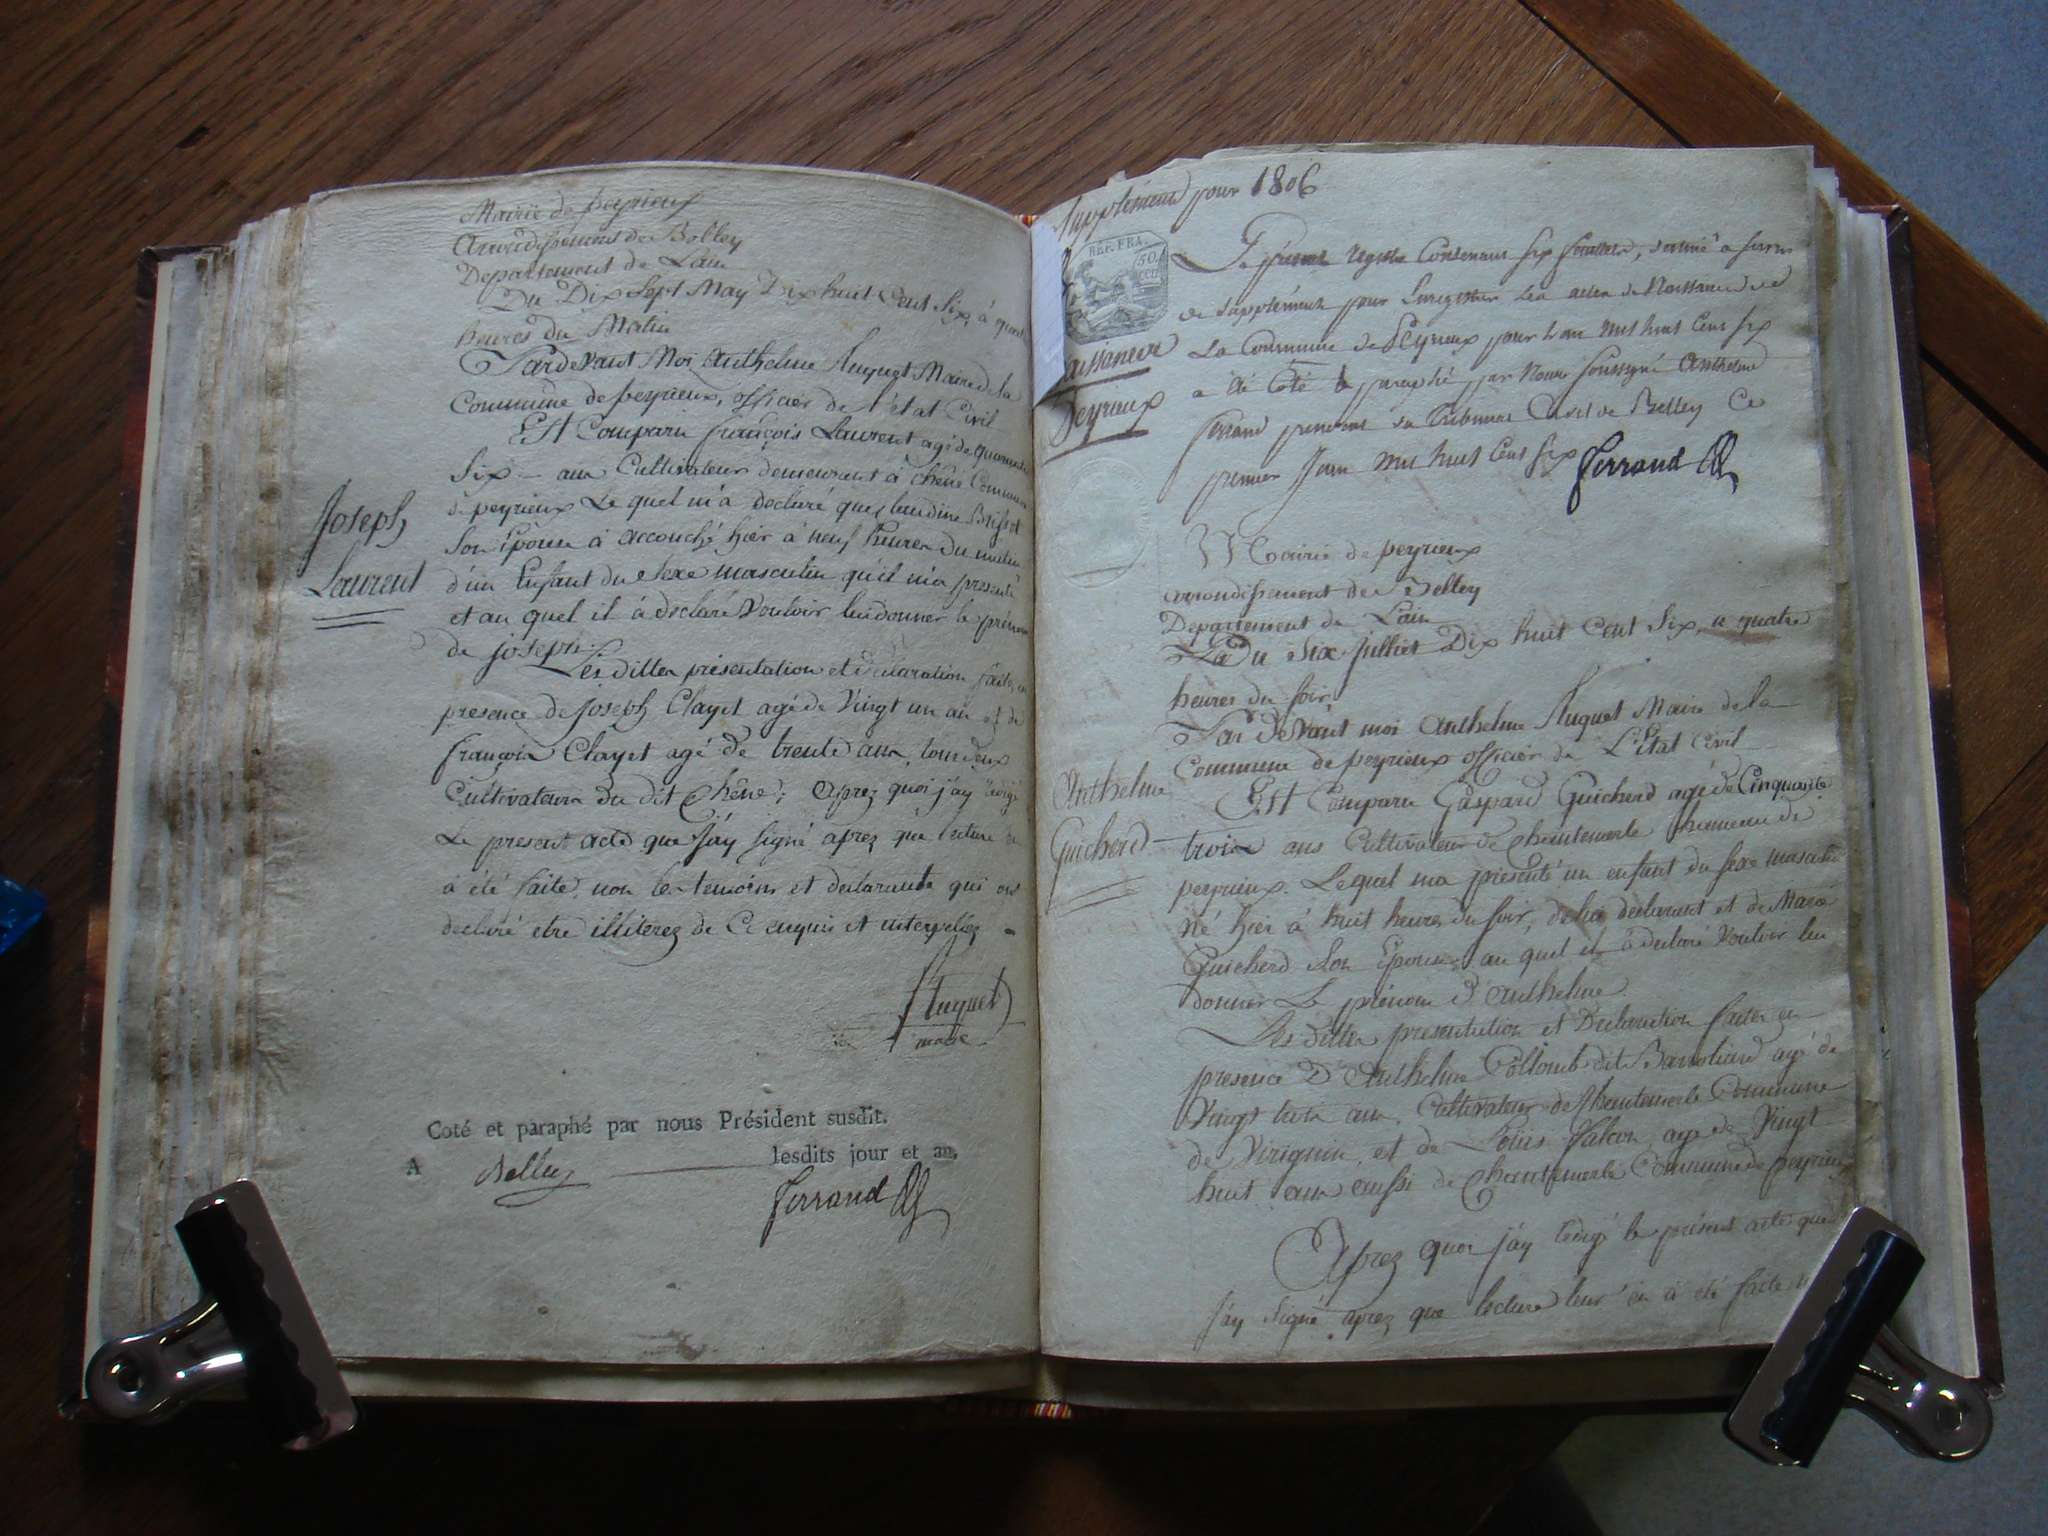 Mairie de peyrieux
Arrondissement de Belley
Departement de Lain
Du Dix Sept May Dix huit Cent Six, à quatre
heures du Matin
Pardevant Moi Anthelme Huguet Maire de la
Commune de peyrieux, officier de l'état Civil
Est Comparu françois Laurent agé de quarante
Six ans Cultivateur demeurant à Chêne Commune
de peyrieux Le quel m'a declaré que Claudine
Son Epouse à accouché hier à neuf heures du matin
d'un Enfant du Sexe masculin qu'il m'a presenté
et au quel il à declaré Vouloir lui donner le prénom
de joseph.
Joseph
Laurent
Les dittes présentation et declaration faites en
presence de Joseph Clayet agé de Vingt un an et de
françois Clayet agé de trente ans, tous deux
Cultivateurs du dit Chêne; Aprez quoi j'ay redigé
Le present acte que J'ay Signé aprez que lecture
à été faite, non les temoins et declarants qui ont
declaré etre illiterez de Ce enquis et interpellez
Huguet
maire
Coté et paraphé par nous Président susdit.
A Belley lesdits jour et an,
Ferrand
Supplément pour 1806
RÉP. FRA.
50
CEN
Naissances
Peyrieux
Le présent registre Contenant six feuillets, destiné a servir
de supplément pour Enregistrer les actes de Naissances de
La Commune de Peyrieux pour L'an mil huit Cent six
a été Coté & paraphé par Nous soussigné Anthelme
ferrand president du Tribunal Civil de Belley Ce
premier Juin mil huit Cent six Ferrand
Mairie de peyrieux
arrondissement de Belley
Departement de Lain
Du Six Julliet Dix huit Cent Six, a quatre
heures du soir,
Par Devant moi Anthelme Huguet Maire de la
Commune de peyrieux officier de L'Etat Civil
Anthelme
Guicherd
Est Comparu Gaspard Guicherd agé de Cinquante
trois ans Cultivateur de Chantemerle hameau de
peyrieux. Lequel m'a presenté un enfant du sexe masculin
Né hier à huit heures du soir, de lui déclarant et de Marie
Guicherd Son Epouse, au quel il à declaré Vouloir lui
donner Le prénom d'Anthelme.
Les dittes presentation et Declaration faites en
presence D'Anthelme Collomb dit agé de
Vingt trois ans, Cultivateur de Chantemerle Commune
de Virignin, et de Loüis Falcon agé de Vingt
huit ans aussi de Chantemerle Commune de peyrieux
Aprez quoi j'ay redigé le présent acte que
J'ay Signé aprez que lecture leur en à été faite